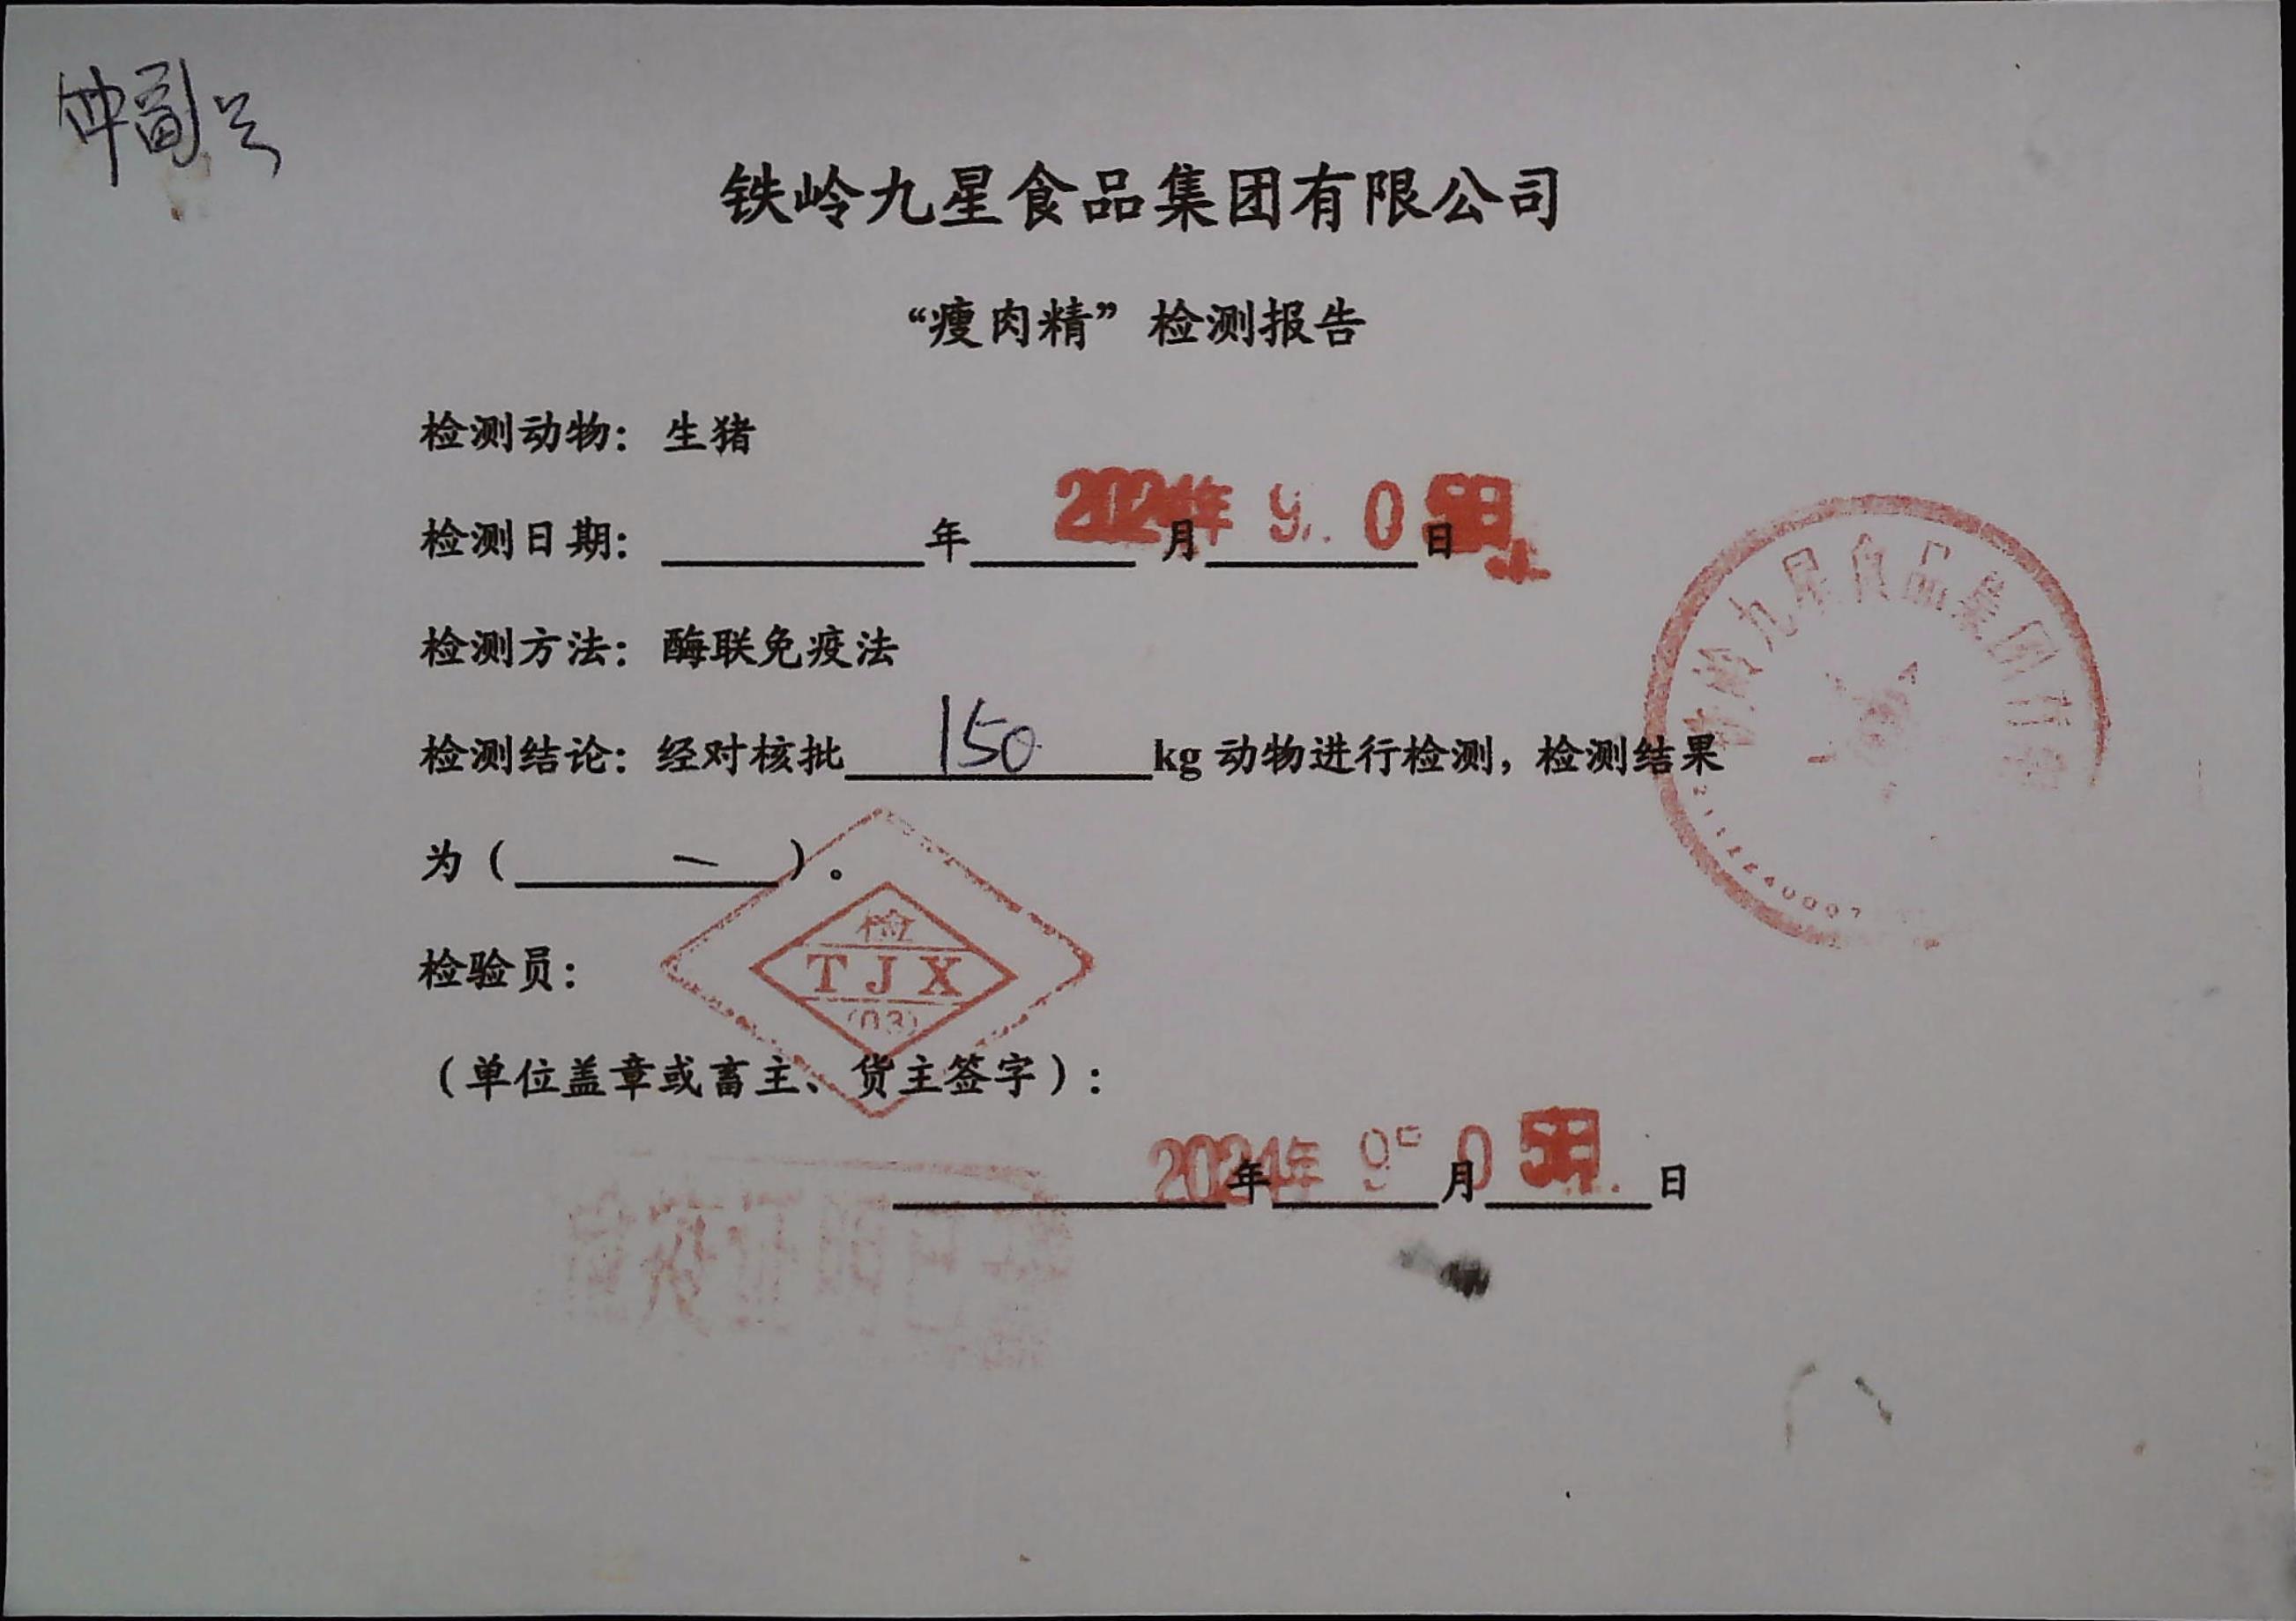 铁岭九星食品集团有限公司
“瘦肉精”检测报告
检测动物：生猪
检测日期：年月日
2024年 9. 05日
检测方法：酶联免疫法
检测结论：经对核批150kg动物进行检测，检测结果
为（一）。
检验员：
检
TJX
(03)
（单位盖章或畜主、货主签字）：
年月日
2024年 9 05日
岭九星食品集团有